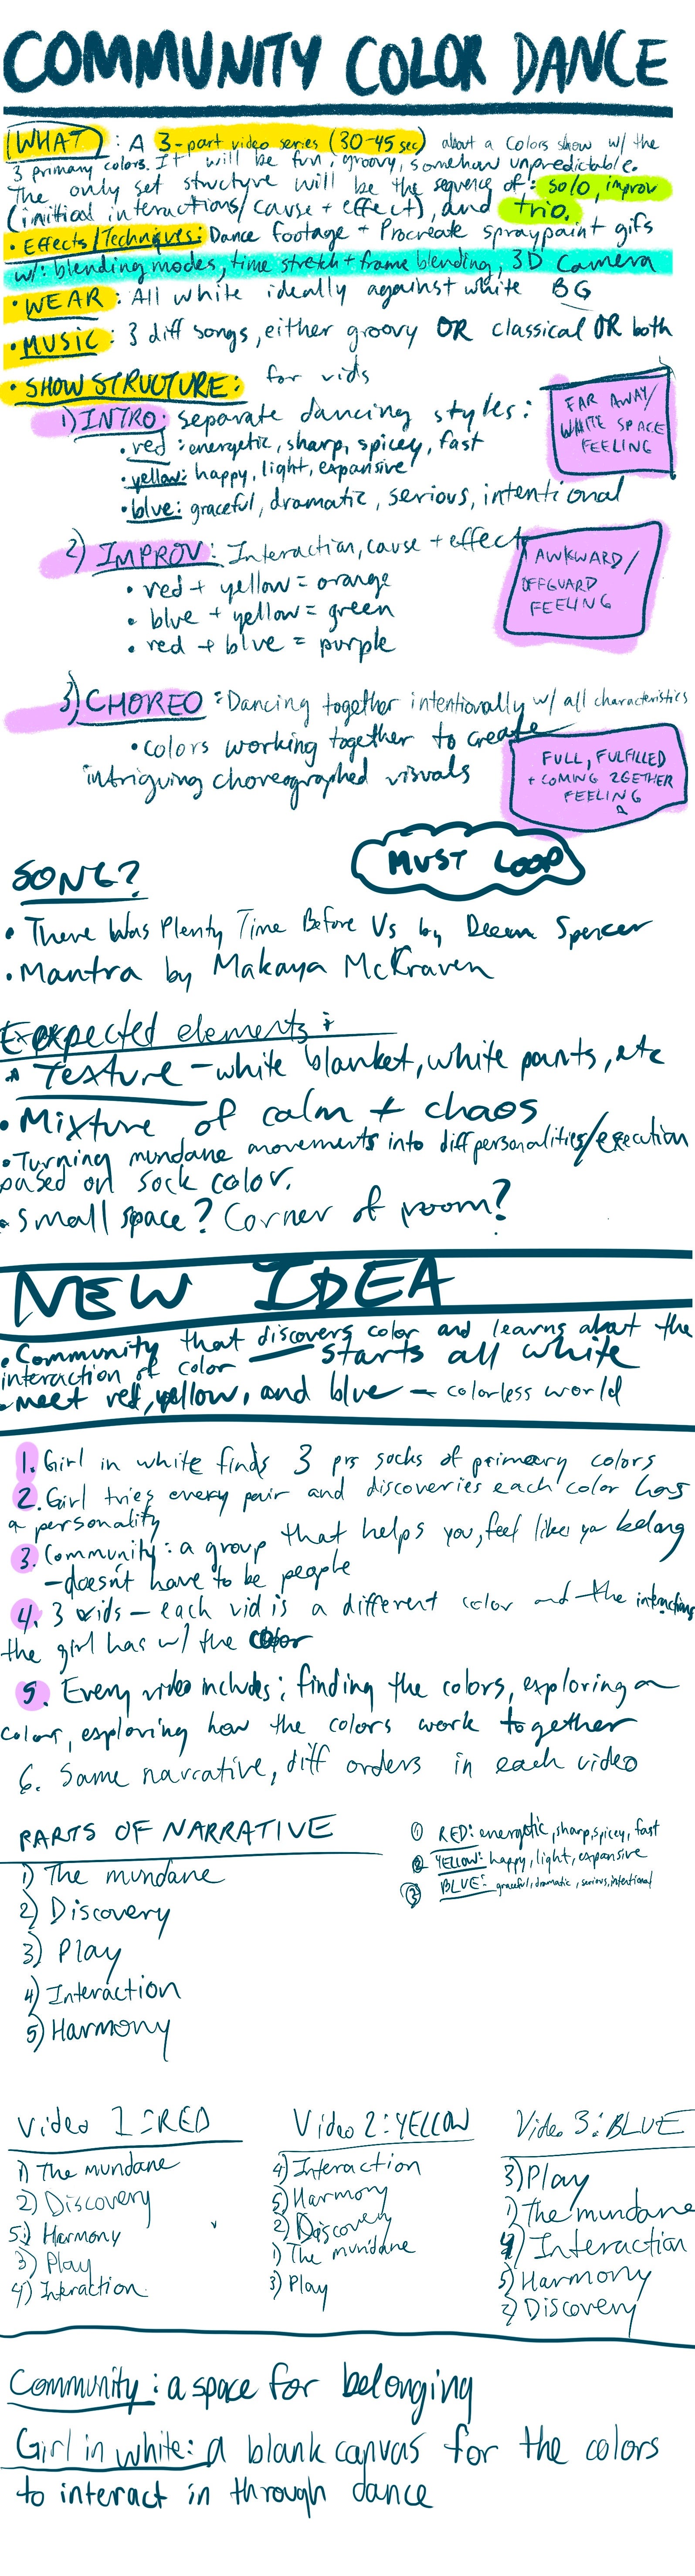 COMMUNITY COLOR DANCE
WHAT: A 3-part video series (30-45 sec) about a colors show w/ the
3 primary colors. It will be fun, groovy, somehow unpredictable.
The only set structure will be the sequence of: solo, improv
(initial interactions/cause + effect), and trio.
• Effects/Techniques: Dance footage + Procreate spraypaint gifs
w/: blending modes, time stretch + frame blending, 3D Camera
• WEAR: All white ideally against white BG
• MUSIC: 3 diff songs, either groovy OR classical OR both
• SHOW STRUCTURE: for vids
1) INTRO: separate dancing styles:
• red: energetic, sharp, spicey, fast
• yellow: happy, light, expansive
• blue: graceful, dramatic, serious, intentional
FAR AWAY/
WHITE SPACE
FEELING
2) IMPROV: Interaction, cause + effect
• red + yellow = orange
• blue + yellow = green
• red + blue = purple
AWKWARD/
OFFGUARD
FEELING
3) CHOREO: Dancing together intentionally w/ all characteristics
• colors working together to create
intriguing choreographed visuals
FULL, FULFILLED
+ COMING 2GETHER
FEELING
MUST LOOP
SONG?
• There Was Plenty Time Before Us by Deem Spencer
• Mantra by Makaya McCraven
Expected elements:
• Texture - white blanket, white pants, etc
• Mixture of calm + chaos
• Turning mundane movements into diff personalities/execution
based on sock color.
• Small space? Corner of room?
NEW IDEA
• Community that discovers color and learns about the
interaction of color starts all white
• meet red, yellow, and blue - colorless world
1. Girl in white finds 3 prs socks of primary colors
2. Girl tries every pair and discoveries each color has
a personality
3. Community: a group that helps you, feel like ya belong
- doesn't have to be people
4. 3 vids - each vid is a different color and the interactions
the girl has w/ the color
5. Every video includes: finding the colors, exploring a
color, exploring how the colors work together
6. Same narrative, diff orders in each video
PARTS OF NARRATIVE
1) The mundane
2) Discovery
3) Play
4) Interaction
5) Harmony
① RED: energetic, sharp, spicey, fast
② YELLOW: happy, light, expansive
③ BLUE: graceful, dramatic, serious, intentional
Video 1: RED
1) The mundane
2) Discovery
5) Harmony
3) Play
4) Interaction
Video 2: YELLOW
4) Interaction
5) Harmony
2) Discovery
1) The mundane
3) Play
Video 3: BLUE
3) Play
1) The mundane
4) Interaction
5) Harmony
2) Discovery
Community: a space for belonging
Girl in white: a blank canvas for the colors
to interact in through dance